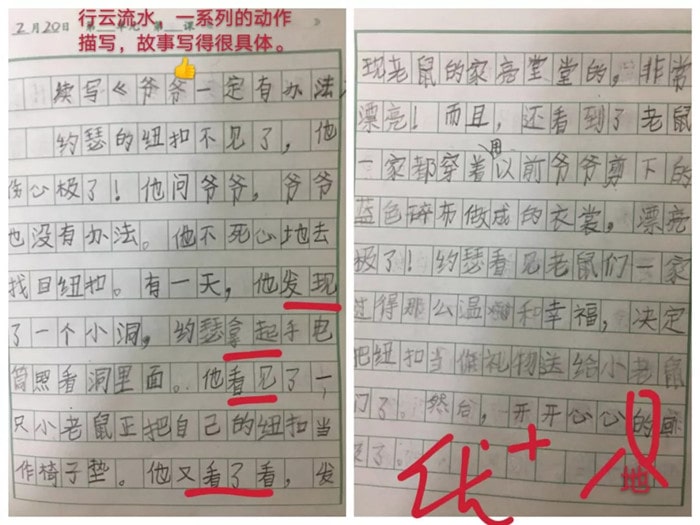 2月20日 第一单元 第一课
行云流水,一系列的动作
描写,故事写得很具体。
续写《爷爷一定有办法》
约瑟的纽扣不见了,他
伤心极了!他问爷爷,爷爷
也没有办法。他不死心地去
找目纽扣。有一天,他发现
了一个小洞,约瑟拿起手电
筒照看洞里面。他看见了一
只小老鼠正把自己的纽扣当
作椅子垫。他又看了看,发
现老鼠的家亮堂堂的,非常
漂亮!而且,还看到了老鼠
一家都穿着用以前爷爷剪下的
蓝色碎布做成的衣裳。漂亮
极了!约瑟看见老鼠们一家
过得那么温暖和幸福,决定
把纽扣当做礼物送给小老鼠
们了。然后,开开心心的回
家了。
地
优+